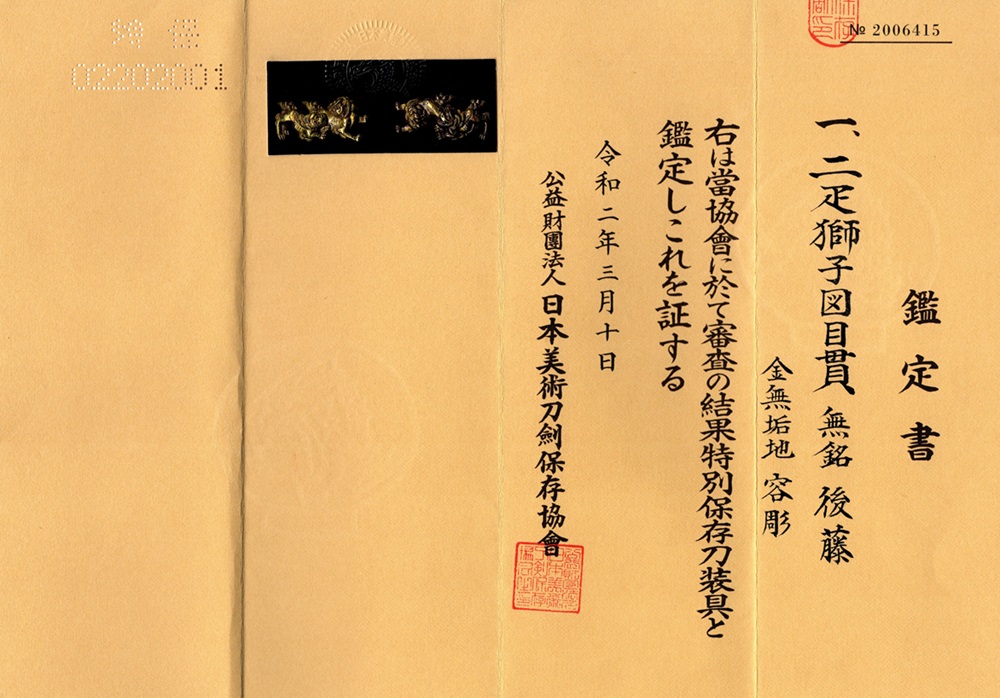 № 2006415
鑑定書
一、二疋獅子図目貫 無銘 後藤
金無垢地 容彫
右は當協會に於て審査の結果特別保存刀装具と
鑑定しこれを証する
令和二年三月十日
公益財團法人 日本美術刀劍保存協會
02202001